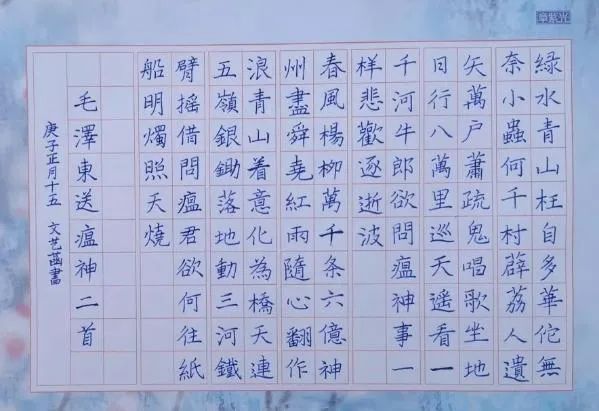 綠水青山枉自多華佗無
奈小蟲何千村薜荔人遺
矢萬戶蕭疏鬼唱歌坐地
日行八萬里巡天遥看一
千河牛郎欲問瘟神事一
样悲歡逐逝波
春風楊柳萬千条六億神
州盡舜堯紅雨隨心翻作
浪青山着意化為橋天連
五嶺銀鋤落地動三河鐵
臂摇借問瘟君欲何往紙
船明燭照天燒
毛澤東送瘟神二首
庚子正月十五 文艺菡書